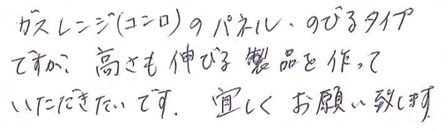 ガスレンジ(コンロ)のパネル、のびるタイプ
ですが、高さも伸びる製品を作って
いただきたいです。宜しくお願い致します